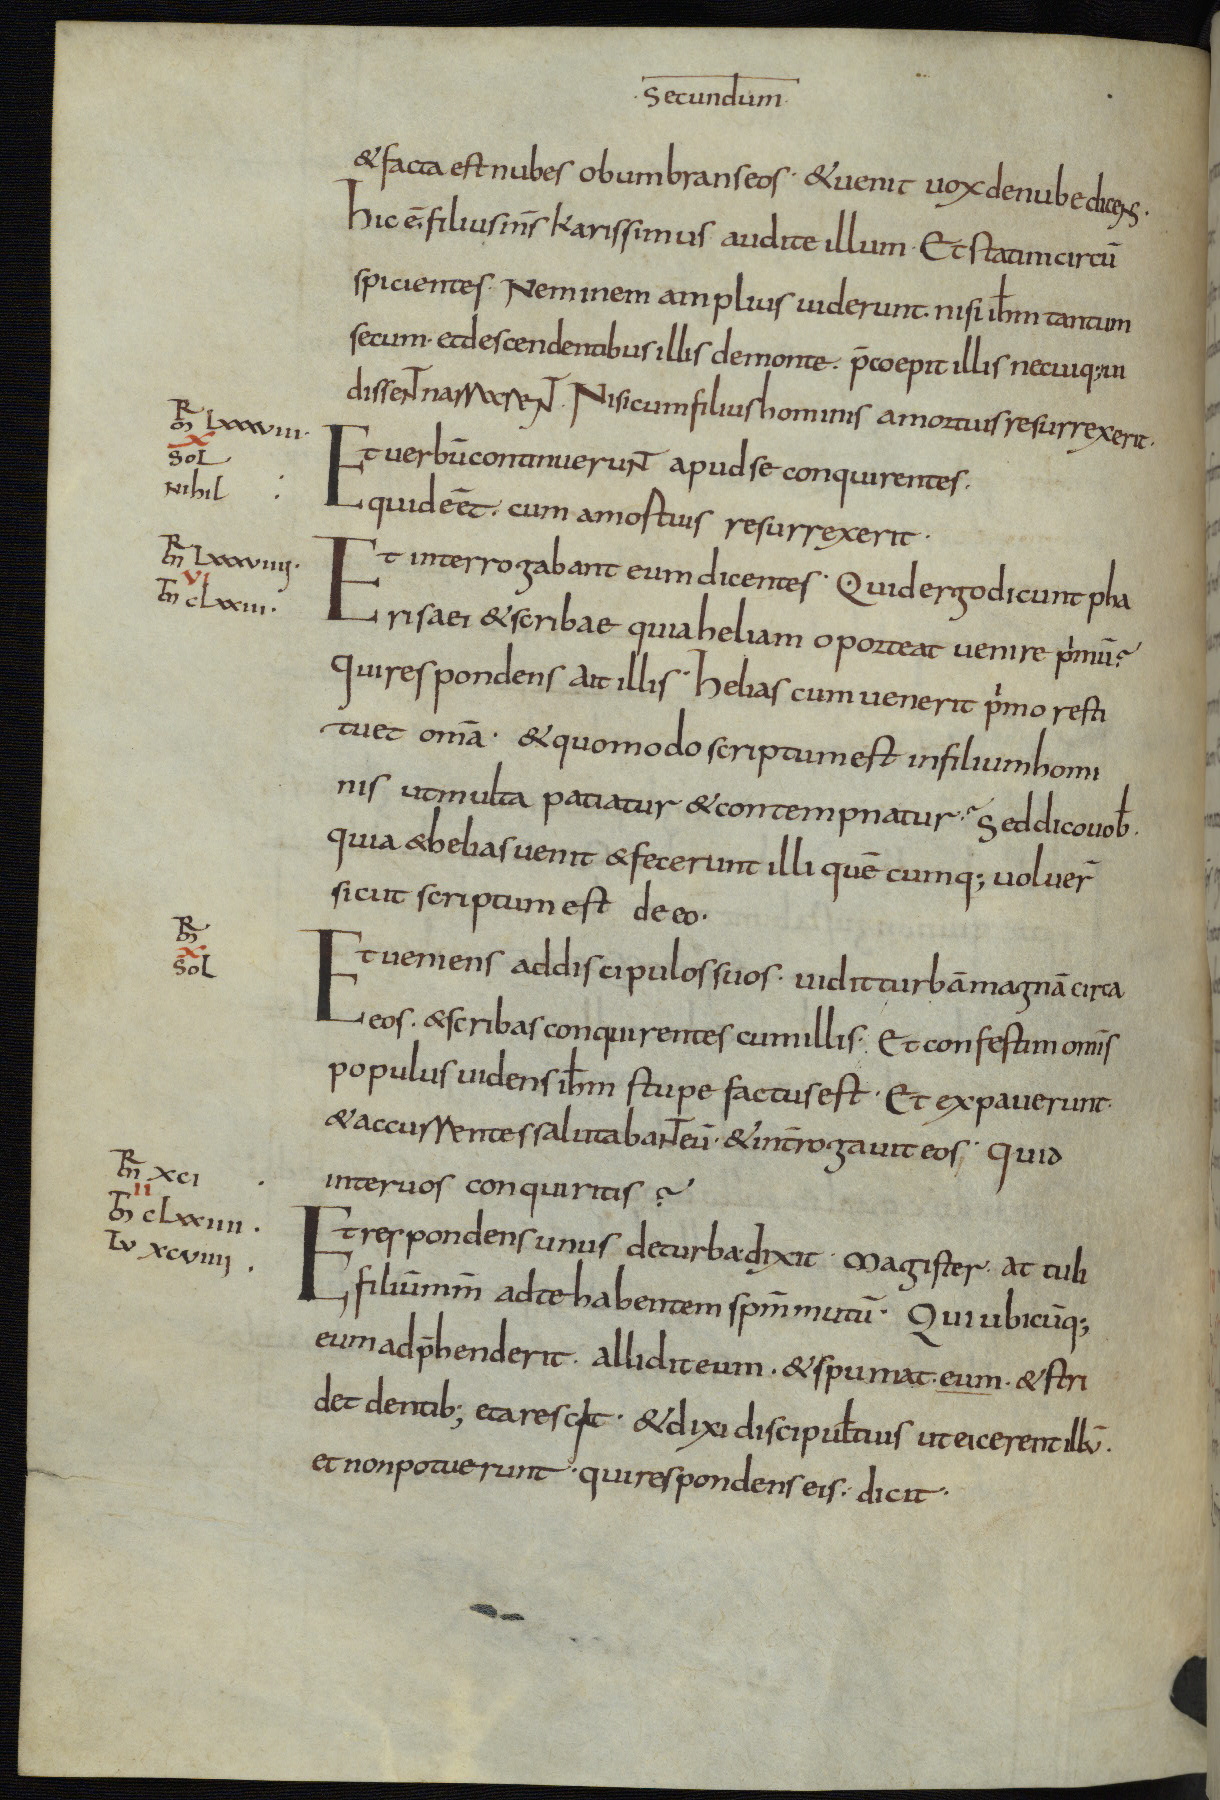 ·secundum·
& facta est nubes obumbrans eos· & uenit uox denube dicens·
hic ē filius m̄s karissimus audite illum· Et statim circū
spicientes· Neminem amplius uiderunt· nisi ih̄m tantum
secum· et descendentibus illis demonte· p̄coepit illis ne cuiq; quae ui
dissent narrarent· Nisi cum filius hominis amortuis resurrexerit·
Et uerbū continuerunt apud se conquirentes·
quid eēt· cum amortuis resurrexerit·
Et interrogabant eum dicentes· Quid ergo dicunt pha
risaei & scribae quia heliam oporteat uenire p'mū?
Qui respondens ait illis· helias cum uenerit p'mo resti
tuet om̄a· & quomodo scriptum est infilium homi
nis ut multa patiatur & contempnatur? Sed dico uob̄·
quia & helias uenit & fecerunt illi quē cumq; uoluer̄
sicut scriptum est de eo·
Et ueniens addiscipulos suos· uidit turbā magnā circa
eos· & scribas conquirentes cum illis· Et confestim om̄is
populus uidens ih̄m stupe factus est· Et expauerunt·
& accurrentes salutabant eū· & int̄rogauit eos· quid
inter uos conquiritis?
Et respondens unus deturba dixit· Magister· at tuli
filiū m̄m adte habentem sp̄m mutū· Qui ubicūq;
eum adp̄henderit· allidit eum· & spumat· eum· & stri
det dentib; et arescit· & dixi discipul̄ tuis ut eicerent illū·
et non potuerunt· qui respondens eis· dicit·
MR LXXXVIII·
X
SOL
NIhil
MR LXXXVIIII·
VI
MT CLXXIII·
MR
X
SOL
MR XCI
II
MT CLXXIIII·
LU XCVIIII·